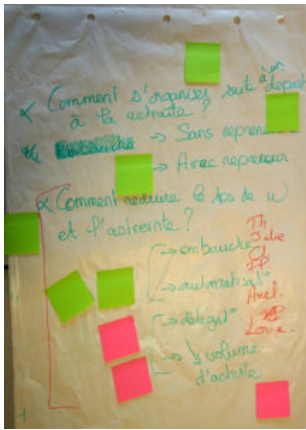 Comment s'organiser suite à un départ
à la retraite ?
→ Sans repreneur
→ Avec repreneur
Comment réduire le tps de W
et l'astreinte ?
→ embauche
→ automatisat°
→ délégat°
→ ↓ volume
d'activité
Th
Julie
Cl
PP
Axel.
1